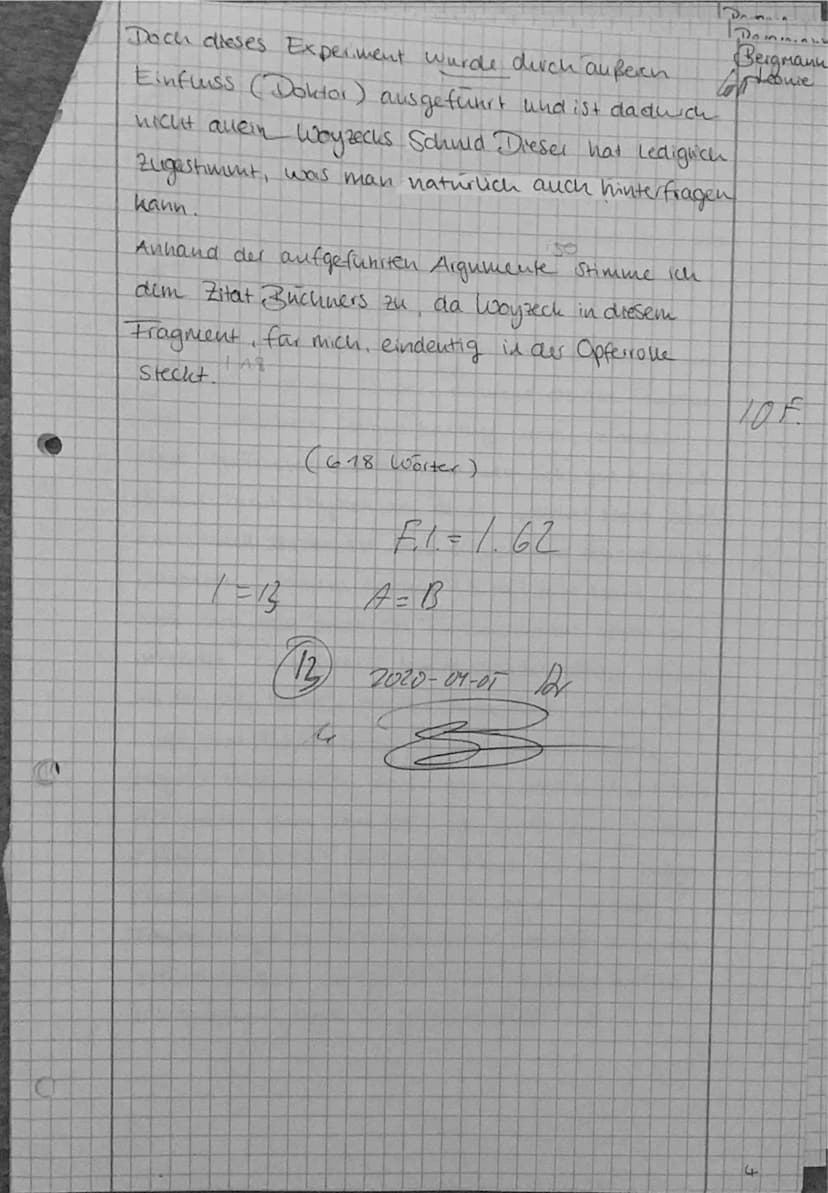 Bergmann
Leonie
Doch dieses Experiment wurde durch äußern
Einfluss (Doktor) ausgeführt und ist dadurch
nicht allein Woyzecks Schuld Dieser hat lediglich
zugestimmt, was man natürlich auch hinterfragen
kann.
so
Anhand der aufgeführten Argumente stimme ich
dem Zitat Büchners zu, da Woyzeck in diesem
Fragment, für mich, eindeutig in der Opferrolle
steckt.
10 F.
(618 Wörter)
F.I. = 1.62
I = 13 A = 13
13 2020-04-05
4